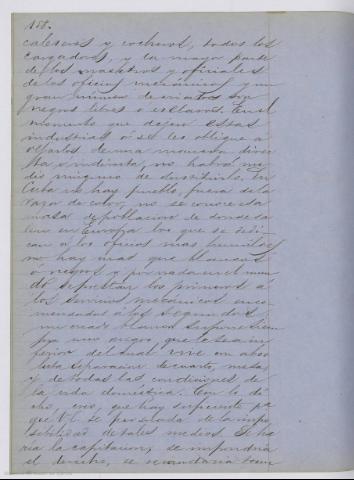 158.
caleseros y cocheros, todos los
cargadores, y la mayor parte
de los maestros y oficiales
de los oficios mecánicos y un
gran número de criados son
negros libres o esclavos. En el
momento que dejen estas
industrias ó se les obligue á
dejarlos de una manera direc
ta ó indirecta, no habrá me
dio ninguno de sustituirlo. En
Cuba no hay pueblo, fuera de la
raza de color, no se conoce esta
masa de población de donde sa
len en Europa los que se dedi
can á los oficios mas humildes;
no hay mas que blancos
ó negros y por nada en el mun
do se prestan los primeros á
los servicios mecánicos enco
mendados á los segundos
un criado blanco siempre tiene
un negro, que le sea in
ferior del cual vive en abso
luta separacion de cuarto, mesa
y de todas las condiciones de
la vida doméstica. Con lo di
cho, creo, que hay suficiente pa
que V. E. se persuada de la impo
sibilidad de tales medios. Se ha
ria la capitacion, se impondria
el derecho, se